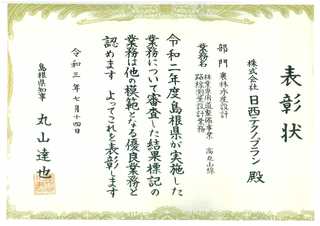 表彰状
株式会社 日西テクノプラン 殿
部門 農林水産設計
業務名 林業専用道整備事業 高丸山線
路線測量設計業務
令和二年度島根県が実施した
業務について審査した結果標記の
業務は他の模範となる優良業務と
認めます よってこれを表彰します
令和三年七月十四日
島根県知事 丸山達也